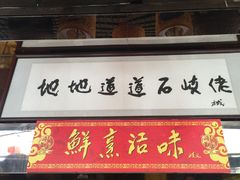 地地道道石岐佬
鮮烹活味